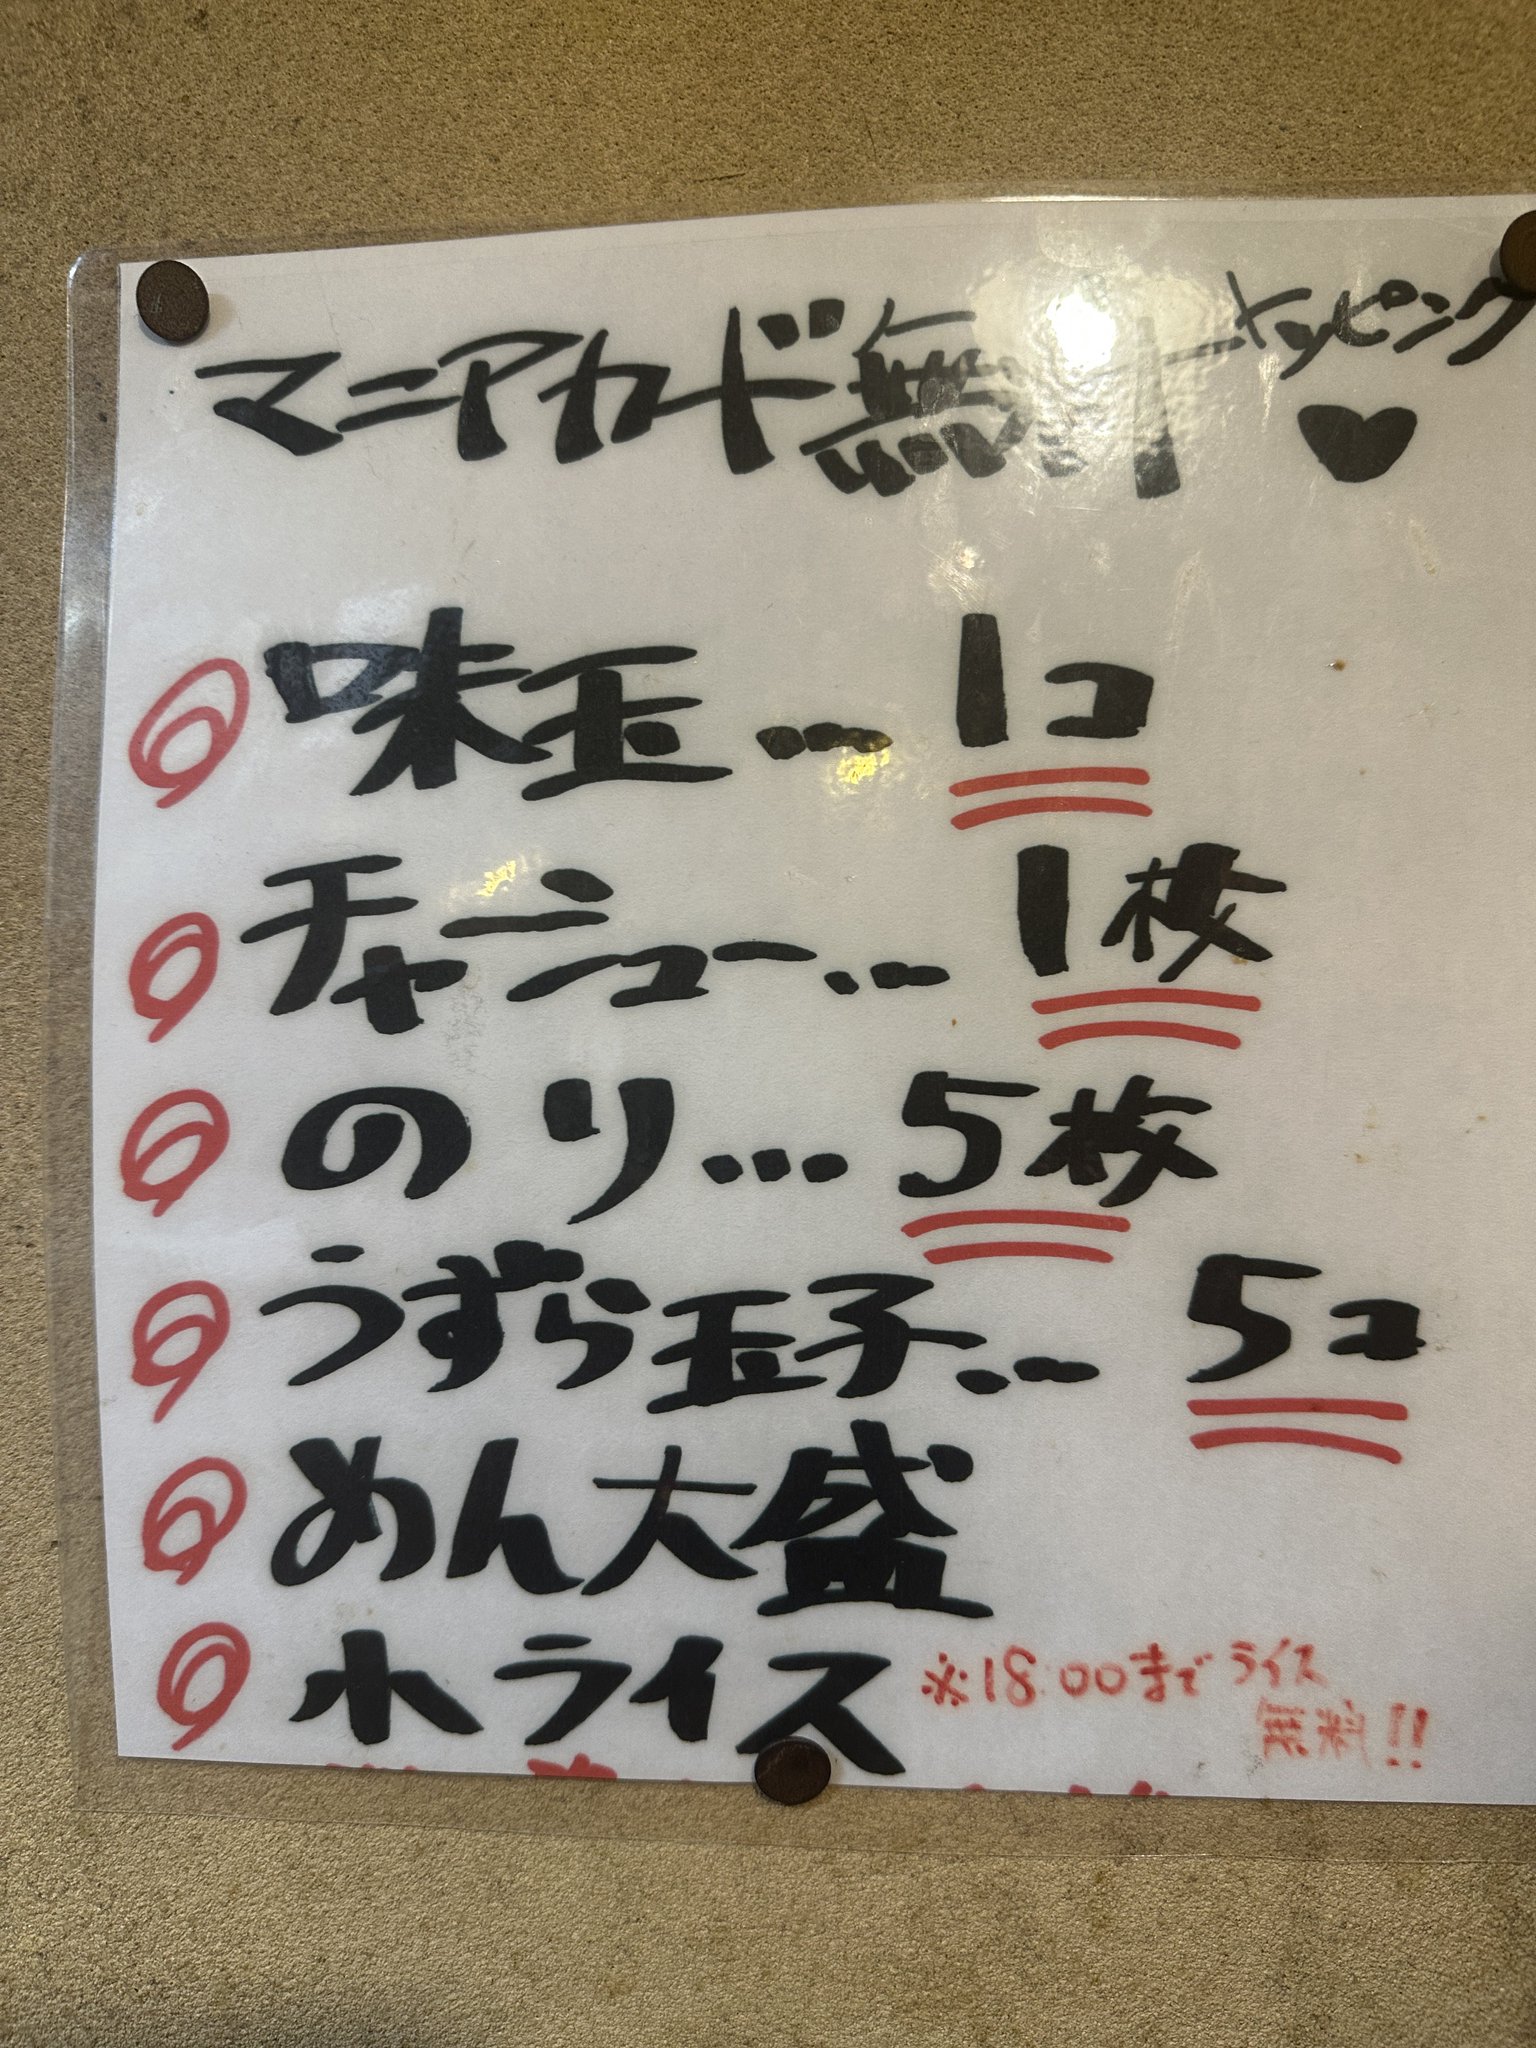 マニアカード無料トッピング♥
味玉…1コ
チャーシュー…1枚
のり…5枚
うずら玉子…5コ
めん大盛
小ライス ※18:00までライス
無料!!